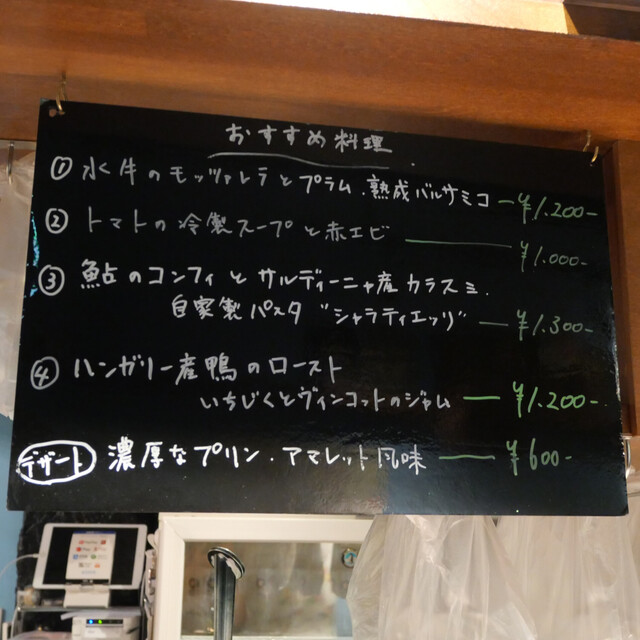 おすすめ料理
① 水牛のモッツァレラとプラム、熟成バルサミコ ー¥1.200-
② トマトの冷製スープと赤エビ ー ¥1.000-
③ 鮎のコンフィとサルディーニャ産カラスミ.
自家製パスタ "シャラティエッリ" ー ¥1.300-
④ ハンガリー産鴨のロースト
いちじくとヴィンコットのジャム ー ¥1.200-
デザート 濃厚なプリン・アマレット風味 ー ¥600-